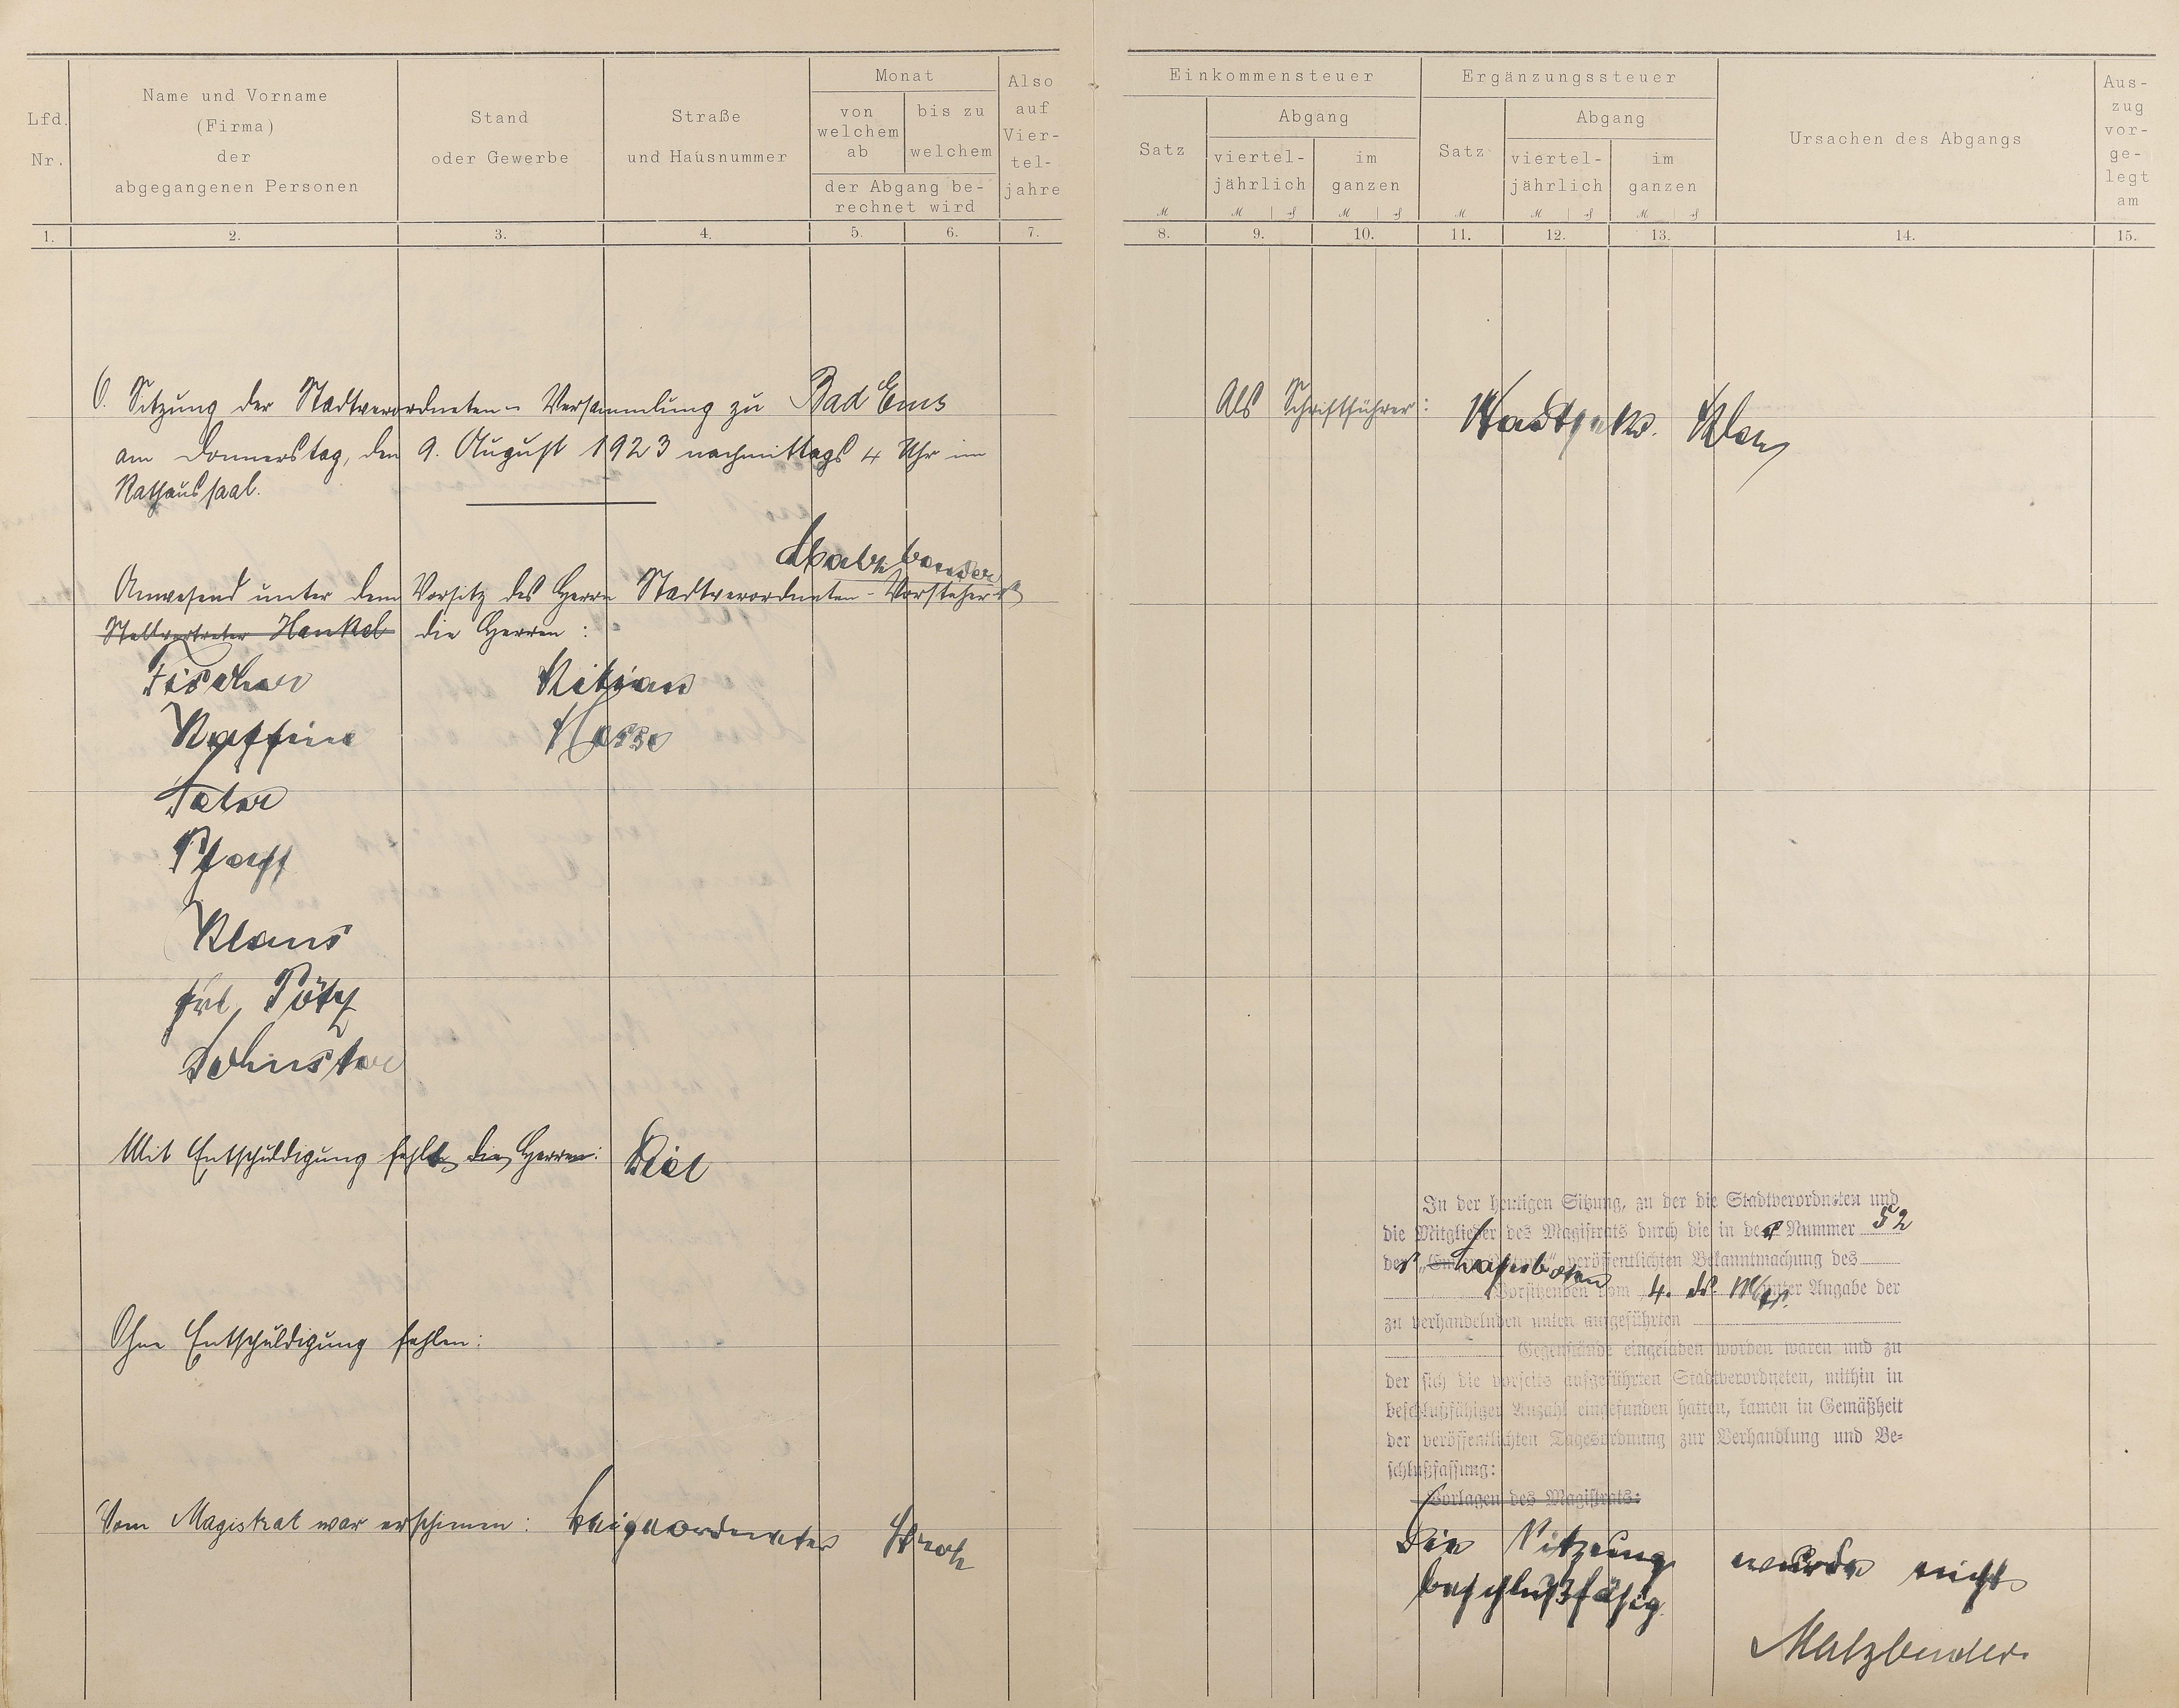 Lfd. Nr.
Name und Vorname
(Firma)
der
abgegangenen Personen
Stand
oder Gewerbe
Straße
und Hausnummer
Monat
von welchem ab
bis zu welchem
der Abgang be-
rechnet wird
Also
auf
Vier-
tel-
jahre
1. 2. 3. 4. 5. 6. 7.
6. Sitzung der Stadtverordneten-Versammlung zu Bad Ems
am Donnerstag, den 9. August 1923 nachmittags 4 Uhr im
Rathaussaal.
Anwesend unter dem Vorsitz des Herrn Stadtverordneten-Vorsteher
Stellvertreter Hankel die Herren:
Fischer
Kilian
Kaffine
Hasse
Pfaff
Klaus
Frl. Pötz
Schuster
Mit Entschuldigung fehlt die Herren:
Ohne Entschuldigung fehlen:
Vom Magistrat war erschienen: Beigeordneter Stroh
Einkommensteuer
Satz
Abgang
viertel-
jährlich
im
ganzen
Ergänzungssteuer
Satz
Abgang
viertel-
jährlich
im
ganzen
Ursachen des Abgangs
Aus-
zug
vor-
ge-
legt
am
8. 9. 10. 11. 12. 13. 14. 15.
Als Schriftführer:
In der heutigen Sitzung, zu der die Stadtverordneten und
die Mitglieder des Magistrats durch die in der Nummer 52
der veröffentlichten Bekanntmachung des
Vorsitzenden vom 4. ds. Mts. unter Angabe der
zu verhandelnden unten aufgeführten
Gegenstände eingeladen worden waren und zu
der sich die vorseits aufgeführten Stadtverordneten, mithin in
beschlußfähiger Anzahl eingefunden hatten, kamen in Gemäßheit
der veröffentlichten Tagesordnung zur Verhandlung und Be-
schlußfassung:
Vorlagen des Magistrats:
Die Sitzung wurde nicht
beschlußfähig.
Malzbender